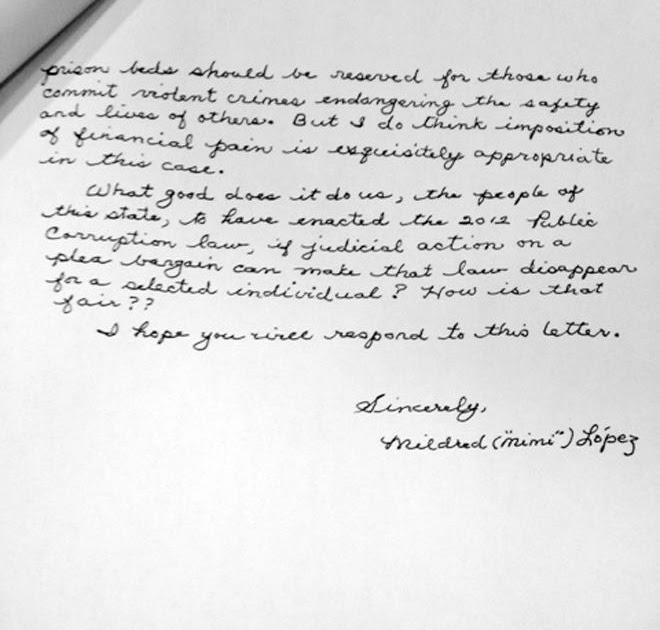 prison beds should be reserved for those who
commit violent crimes endangering the safety
and lives of others. But I do think imposition
of financial pain is exquisitely appropriate
in this case.
What good does it do us, the people of
this state, to have enacted the 2012 Public
Corruption law, if judicial action on a
plea bargain can make that law disappear
for a selected individual? How is that
fair??
I hope you will respond to this letter.
Sincerely,
Mildred ("Mimi") López